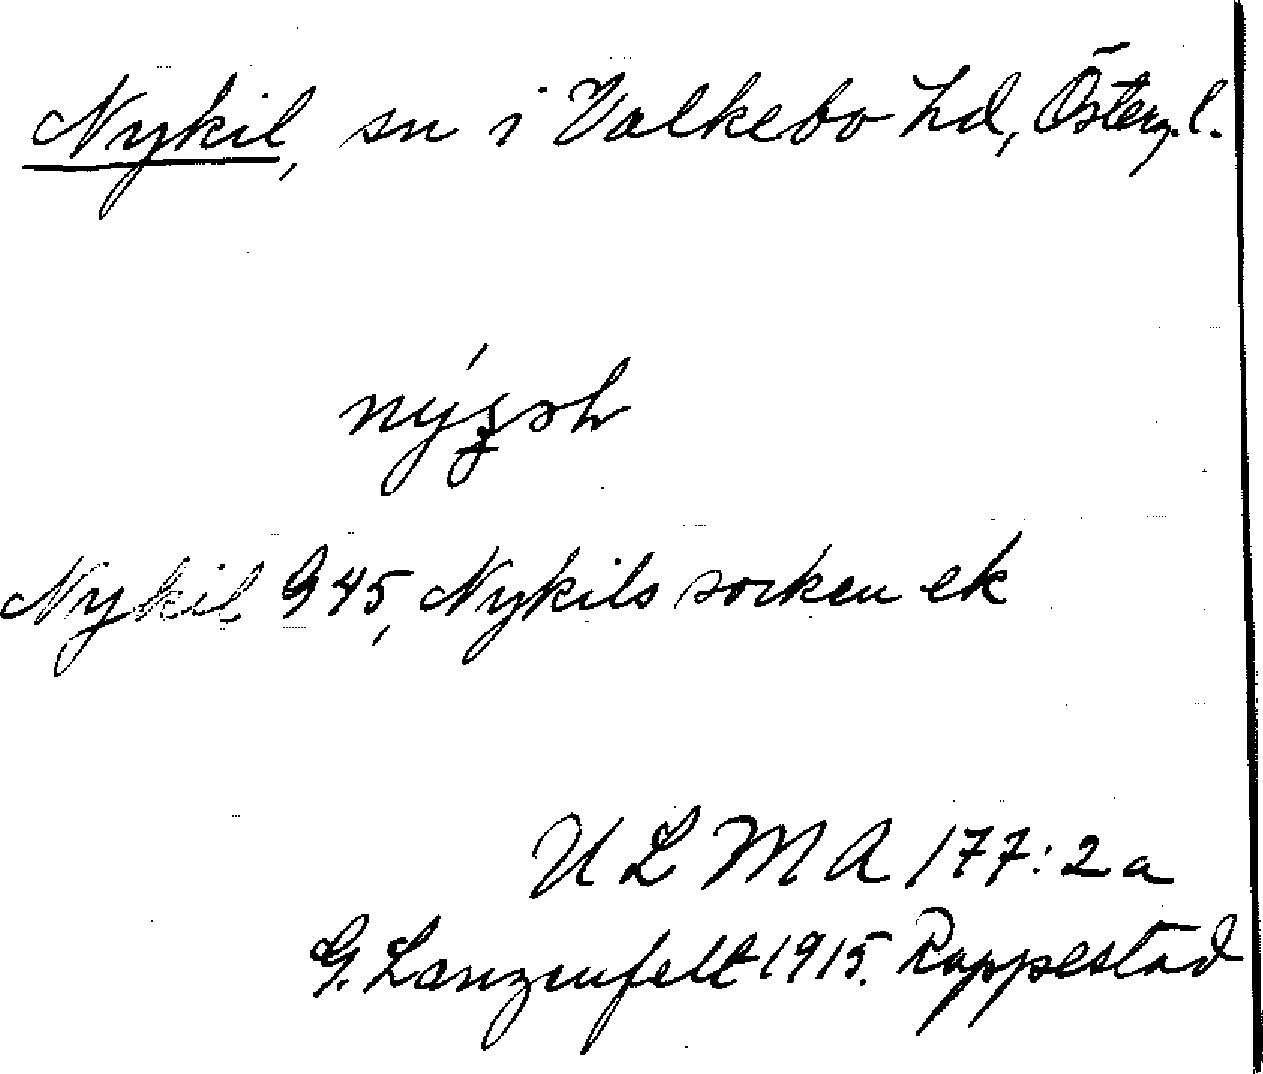 Nykil, sn i Valkebo hd, Österg.l.
Nykil G 45, Nykils socken ek
ULMA 177:2a
G. Lanzenfelt 1915. Rappestad